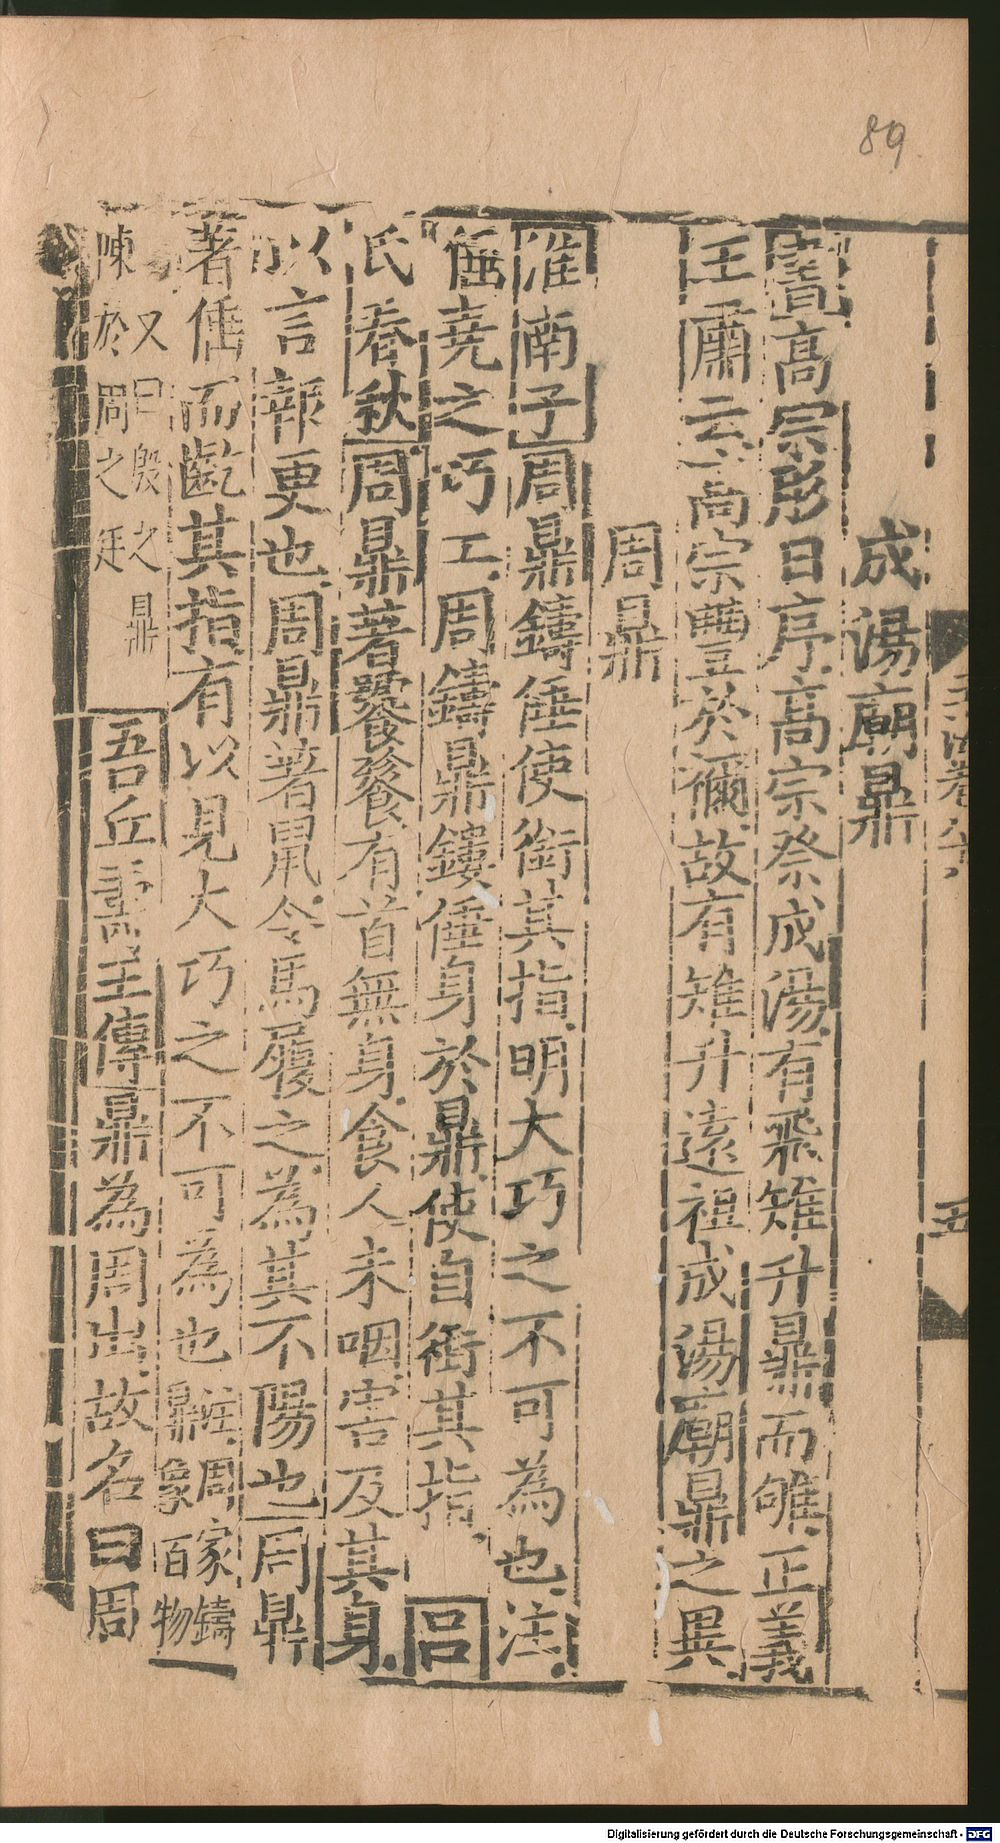 89
成湯廟鼎
書高宗肜日序高宗祭成湯有飛雉升鼎而雊正義
王肅云高宗豐於禰故有雉升遠祖成湯廟鼎之異
周鼎
淮南子周鼎鑄倕使銜其指明大巧之不可為也注
倕堯之巧工周鑄鼎鏤倕身於鼎使自銜其指呂
氏春秋周鼎著饕餮有首無身食人未咽害及其身
以言報更也周鼎著鼠令馬履之為其不陽也周鼎
著倕而齕其指有以見大巧之不可為也注周家鑄鼎象百物
又曰殷之鼎陳於周之廷 吾丘壽王傳鼎為周出故名曰周
玉海卷八
五
Digitalisierung gefördert durch die Deutsche Forschungsgemeinschaft - DFG